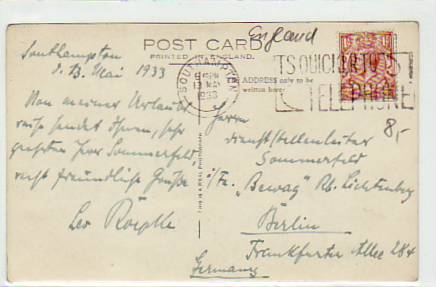 England
POST CARD
PRINTED IN ENGLAND.
SOUTHAMPTON
PM
13 MAY
1933
IT'S QUICKER TO
TELEPHONE
ADDRESS only to be
written here
8,-
Southampton
d. 13. Mai 1933
Von meiner Urlaubs
reise sendet Ihnen, sehr
geehrter Herr Sommerfeld,
recht freundliche Grüße
Leo
THIS IS A REAL PHOTOGRAPH
Herrn
Dienststellenleiter
Sommerfeld
i/Fa. „Bewag" Lichtenberg
Berlin
Frankfurter Allee 284
Germany